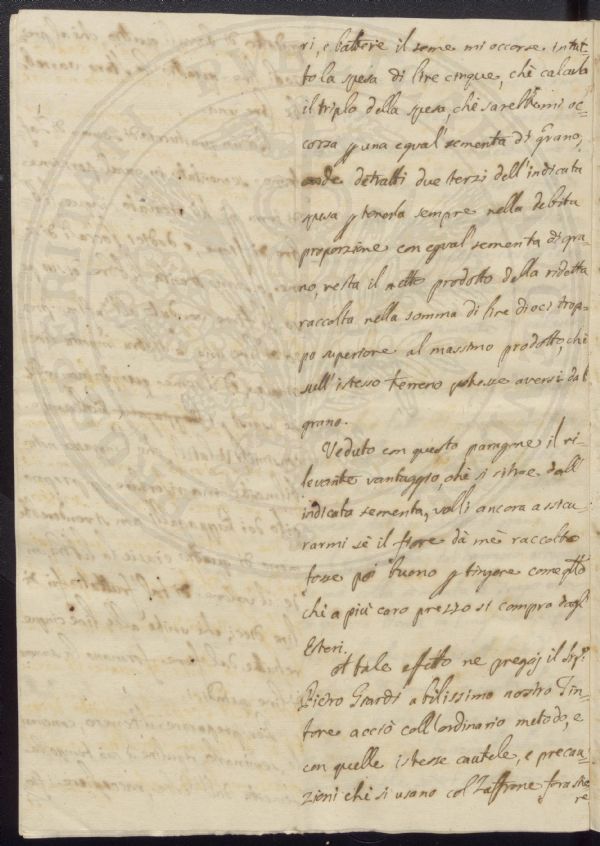 ri, e battere il seme mi occorse in tut=
to la spesa di lire cinque, chè calcola
il triplo della spesa, chè sarebbemi oc=
corsa p una egual sementa di grano,
onde detratti due terzi dell'indicata
spesa p tenerla sempre nella debita
proporzione con egual sementa di gra=
no, resta il netto prodotto della ridetta
raccolta nella somma di lire dieci trop=
po superiore al massimo prodotto, chè
sull'istesso terreno potesse aversi dal
grano.
Veduto con questo paragone il ri=
levante vantaggio, chè si ritrae dall'
indicata sementa, volli ancora assicu=
rarmi sè il fiore dà mè raccolto
fosse poi buono p tingere come qllo
chè a più caro prezzo si compra dagl'
Esteri.
A tale effetto ne pregaj il Sigr
Pietro abilissimo nostro Tin=
tore acciò coll'ordinario metodo, e
con quelle istesse cautele, e precau=
zioni chè si usano col Zaffrone forastie
re